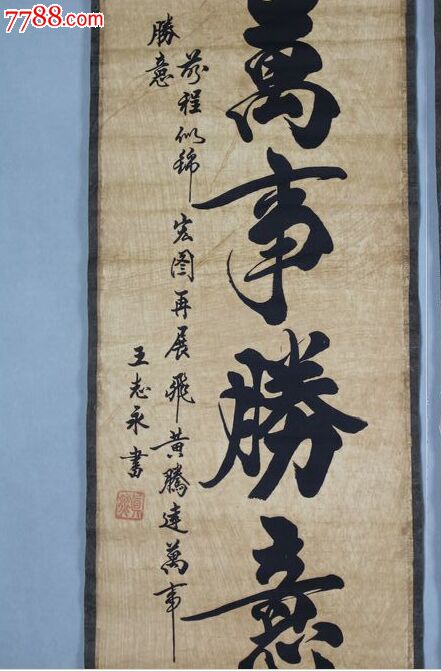 7788.com
萬事勝意
前程似錦 宏图再展飛黄騰達萬事
勝意
王志永書